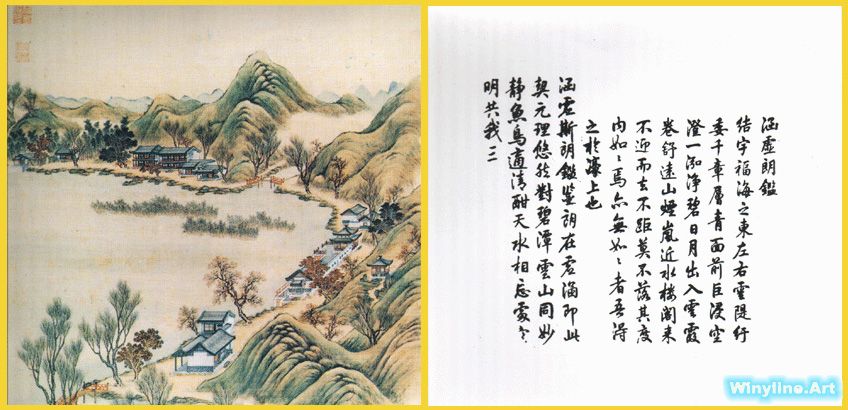 涵虛朗鑑
結宇福海之東左右雲隄紆
委千章層青面前巨浸空
澄一泓淨碧日月出入雲霞
卷舒遠山煙嵐近水樓閣來
不迎而去不距莫不落其度
內如〻焉亦無如〻者吾得
之於濠上也
涵虛斯朗鑑鑒朗在虛涵即此
契元理悠然對碧潭雲山同妙
靜魚鳥適清酣天水相忘處空
明共我三
Winyline.Art